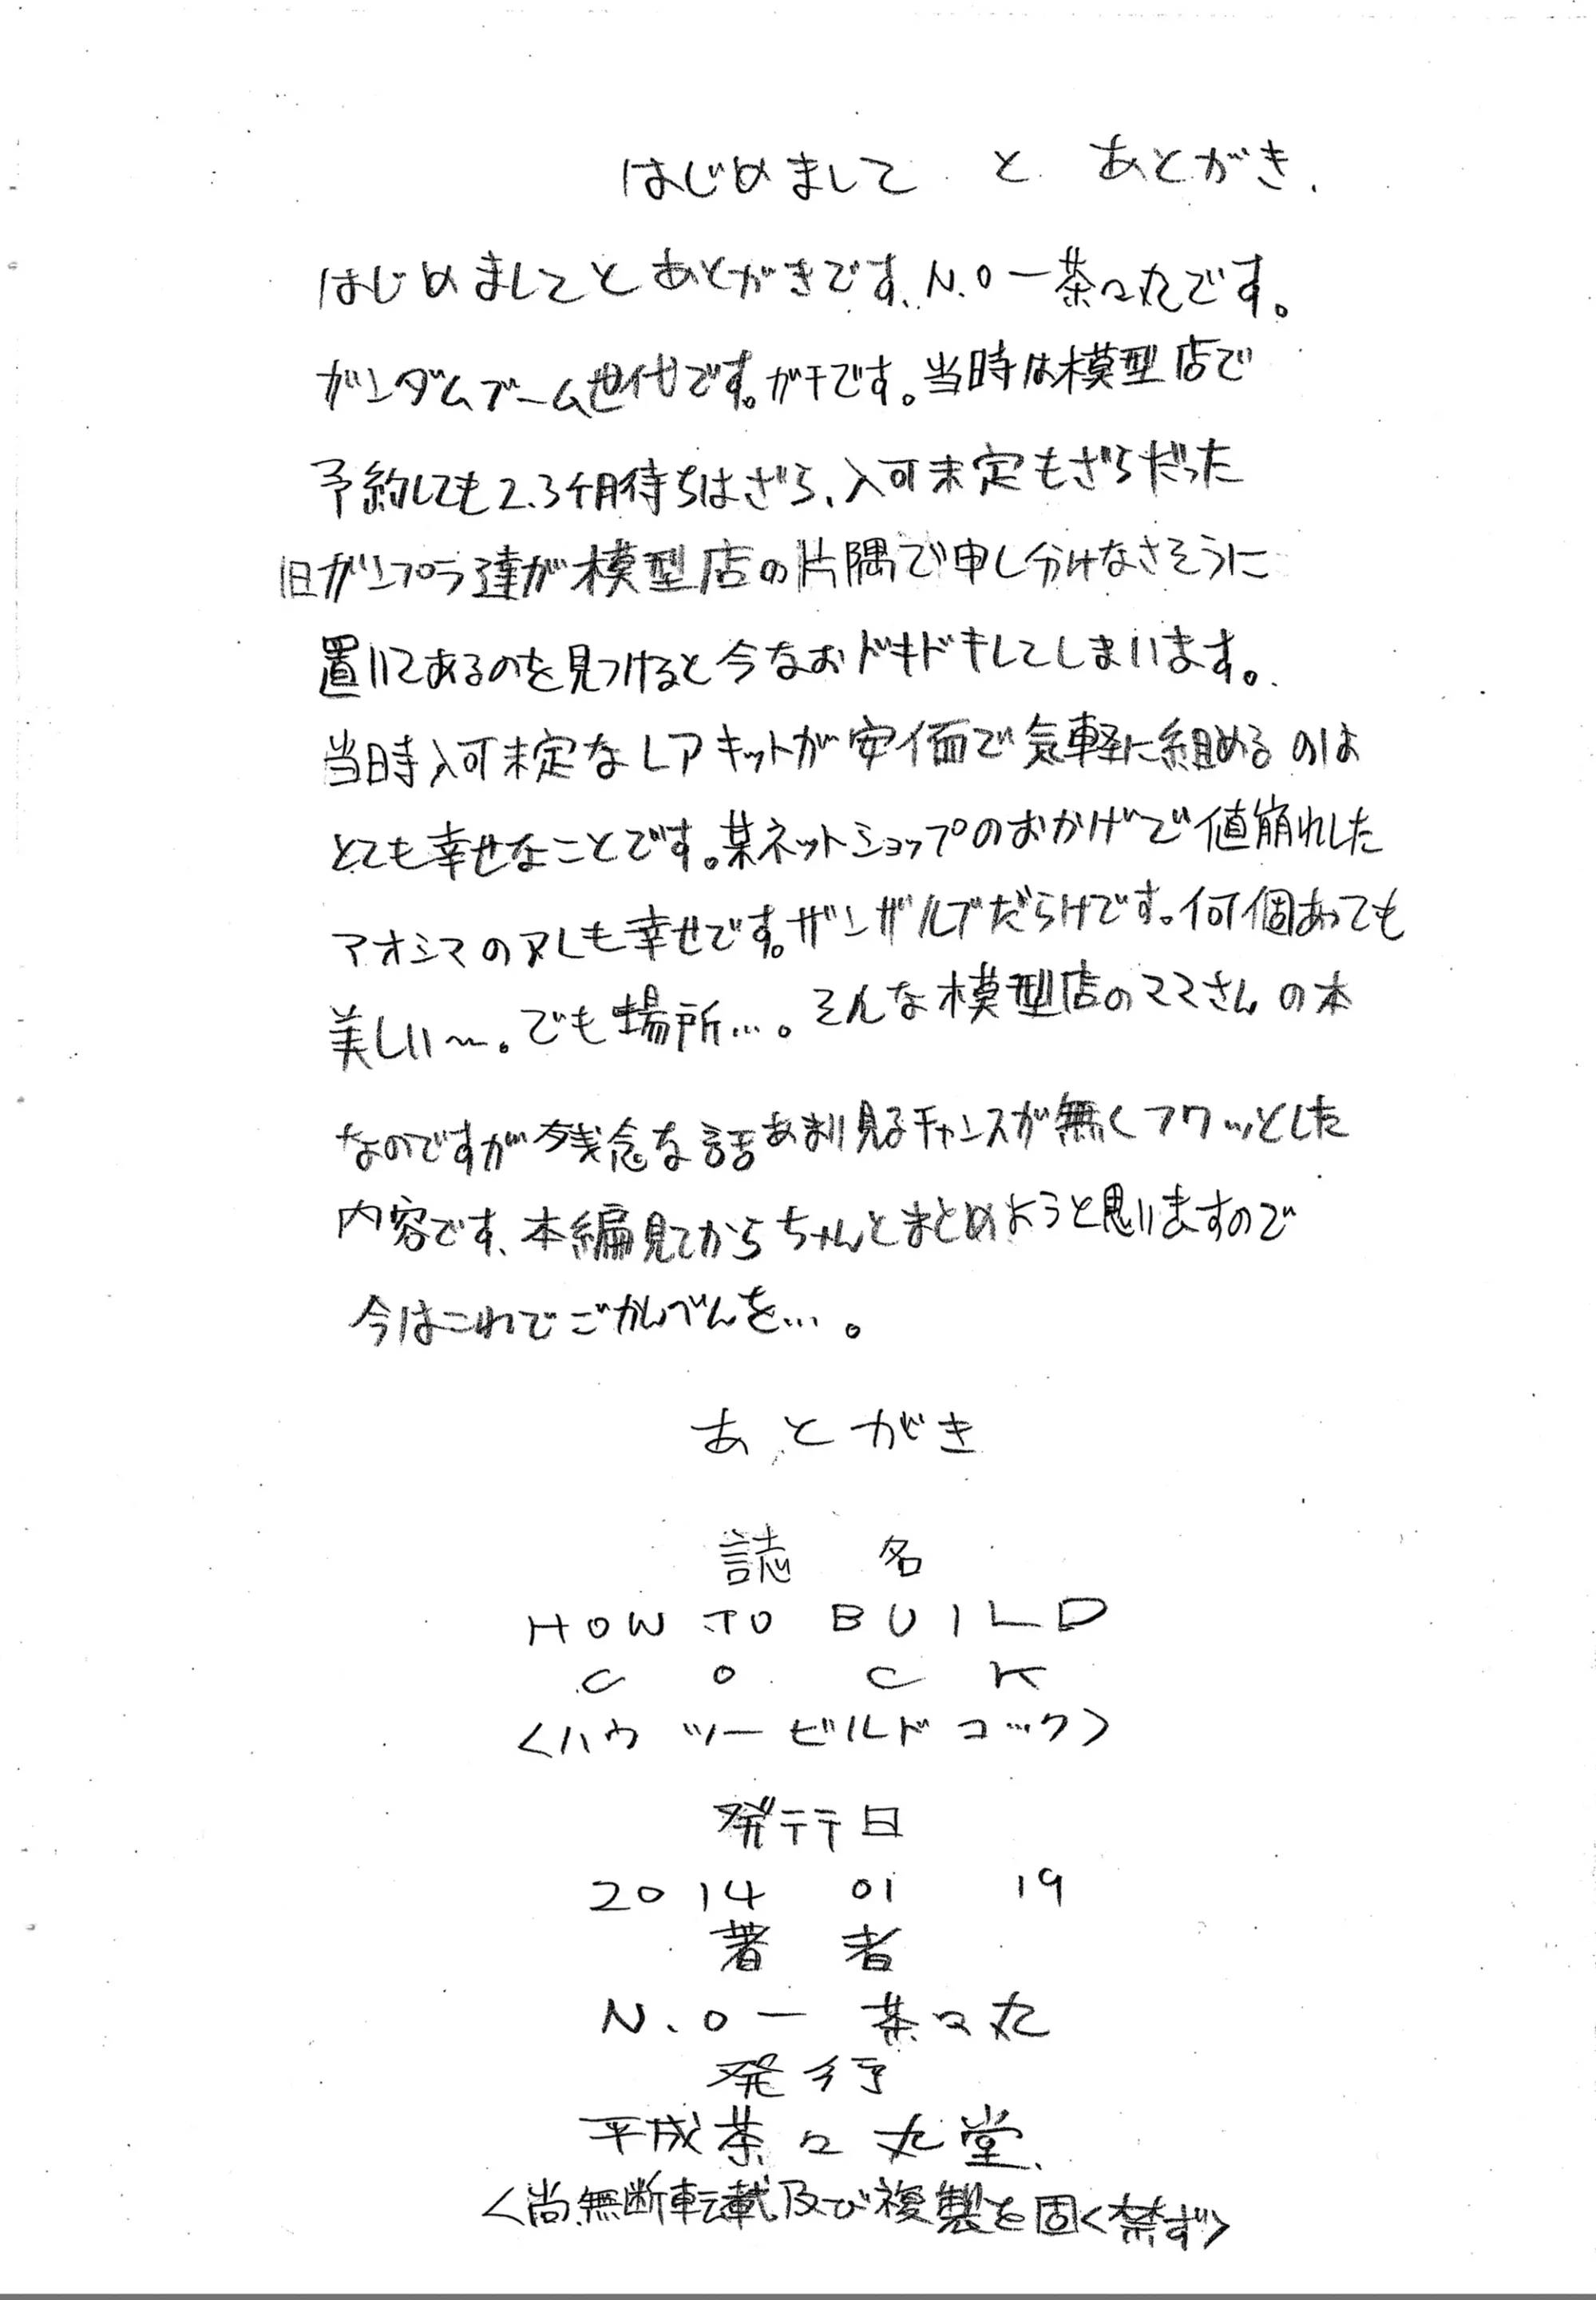 はじめまして と あとがき、
はじめましてとあとがきです、N.O-茶々丸です。
ガンダムブーム世代です。ガチです。当時は模型店で
予約しても2.3ヶ月待ちはざら、入可未定もざらだった
旧ガンプラ達が模型店の片隅で申し分けなさそうに
置いてあるのを見つけると今なおドキドキしてしまいます。
当時入可未定なレアキットが安価で気軽に組めるのは
とても幸せなことです。某ネットショップのおかげで値崩れした
アオシマのアレも幸せです。ザンザルブだらけです。何個あっても
美しい〜。でも場所…。そんな模型店のママさんの本
なのですが残念な話あまり見るチャンスが無くフワッとした
内容です、本編見てからちゃんとまとめようと思いますので
今はこれでごかんべんを…。
あとがき
誌 名
HOW TO BUILD
C O C K
<ハウ ツー ビルド コック>
発行日
2014 01 19
著 者
N.O- 茶々丸
発行
平成茶々丸堂、
<尚無断転載及び複製を固く禁ず>